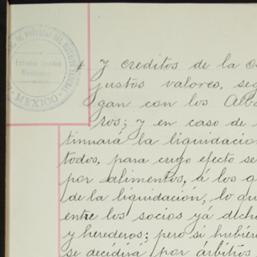 y creditos de la
justos valores, seg
gan con los Alba
ros; y en caso de
tinuará la liquidacio
todos, para cuyo efecto se
por alimentos, á los a
de la liquidación, lo qu
entre los socios ya dicho
y herederos; pero si hubier
se decidirá por árbitros
MEXICO